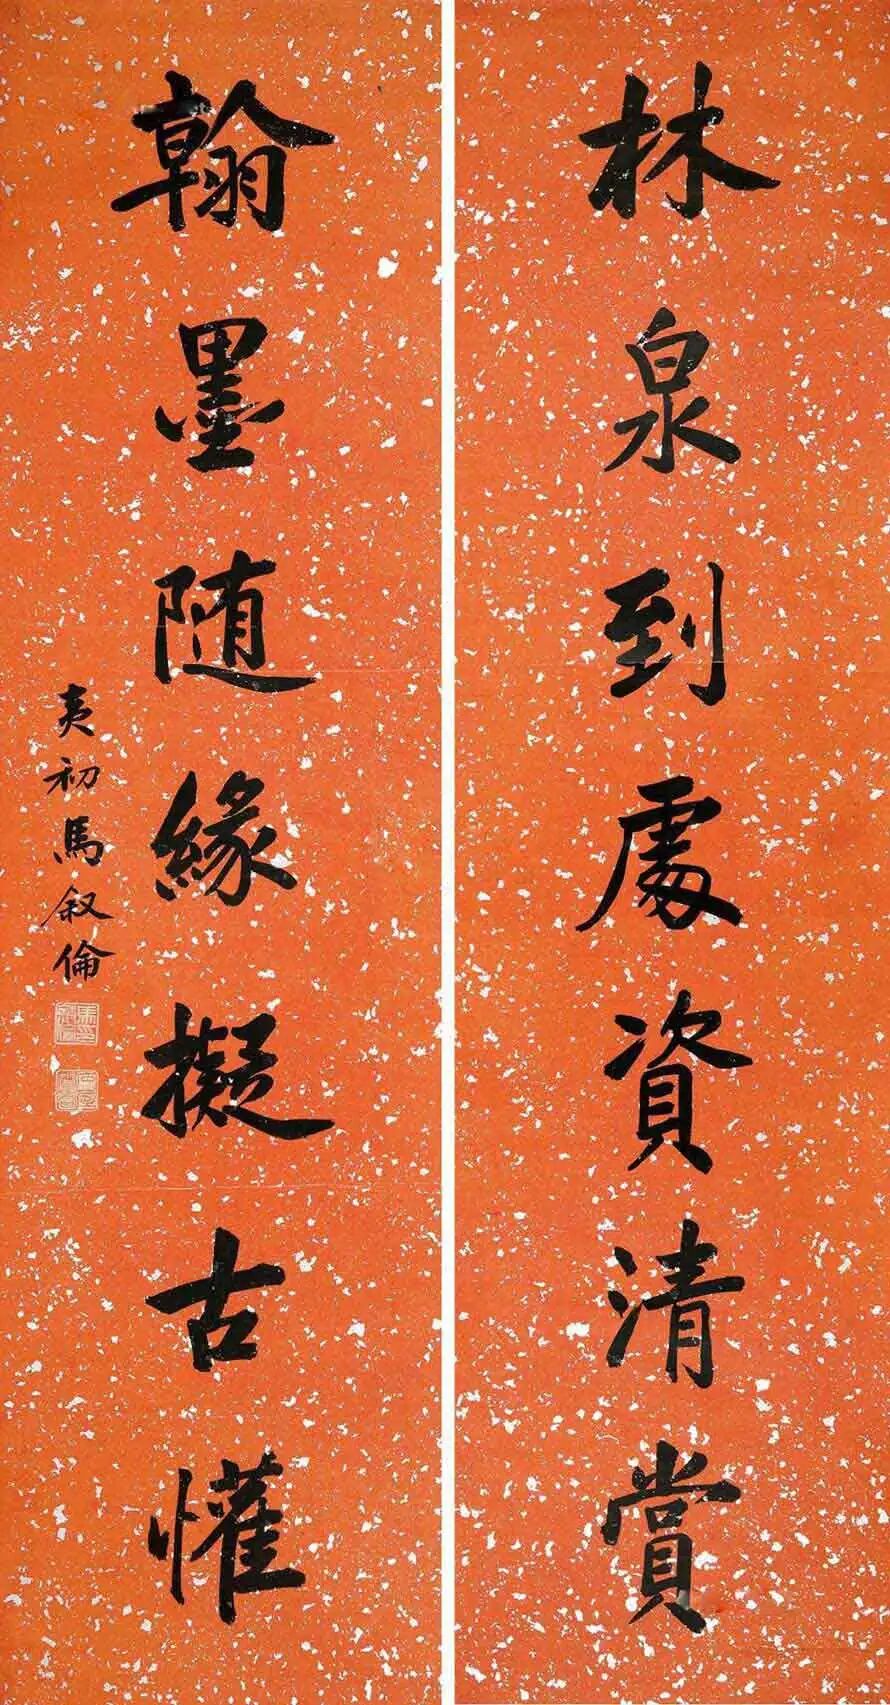 林泉到處資清賞
翰墨随緣擬古懽
夷初馬叙倫